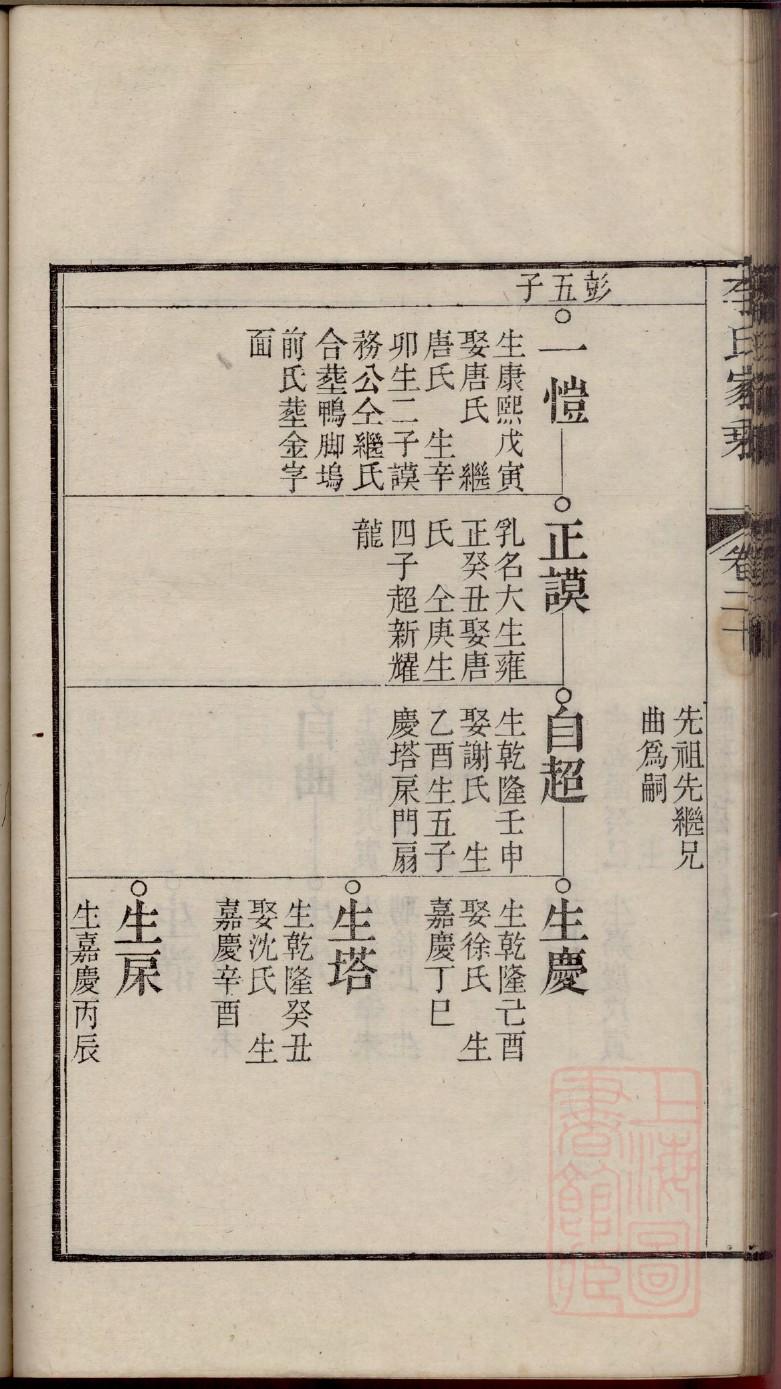 李氏家乘
卷二十
先祖先繼兄
曲爲嗣
彭五子
一愷
生康熙戊寅
娶唐氏 繼
唐氏 生辛
卯生二子謨
務公仝繼氏
合塟鴨脚塢
前氏塟金字
面
正謨
乳名大生雍
正癸丑娶唐
氏 仝庚生
四子超新耀
龍
自超
生乾隆壬申
娶謝氏 生
乙酉生五子
慶塔杘門扇
生慶
生乾隆己酉
娶徐氏 生
嘉慶丁巳
生塔
生乾隆癸丑
娶沈氏 生
嘉慶辛酉
生杘
生嘉慶丙辰
上海圖
書館藏